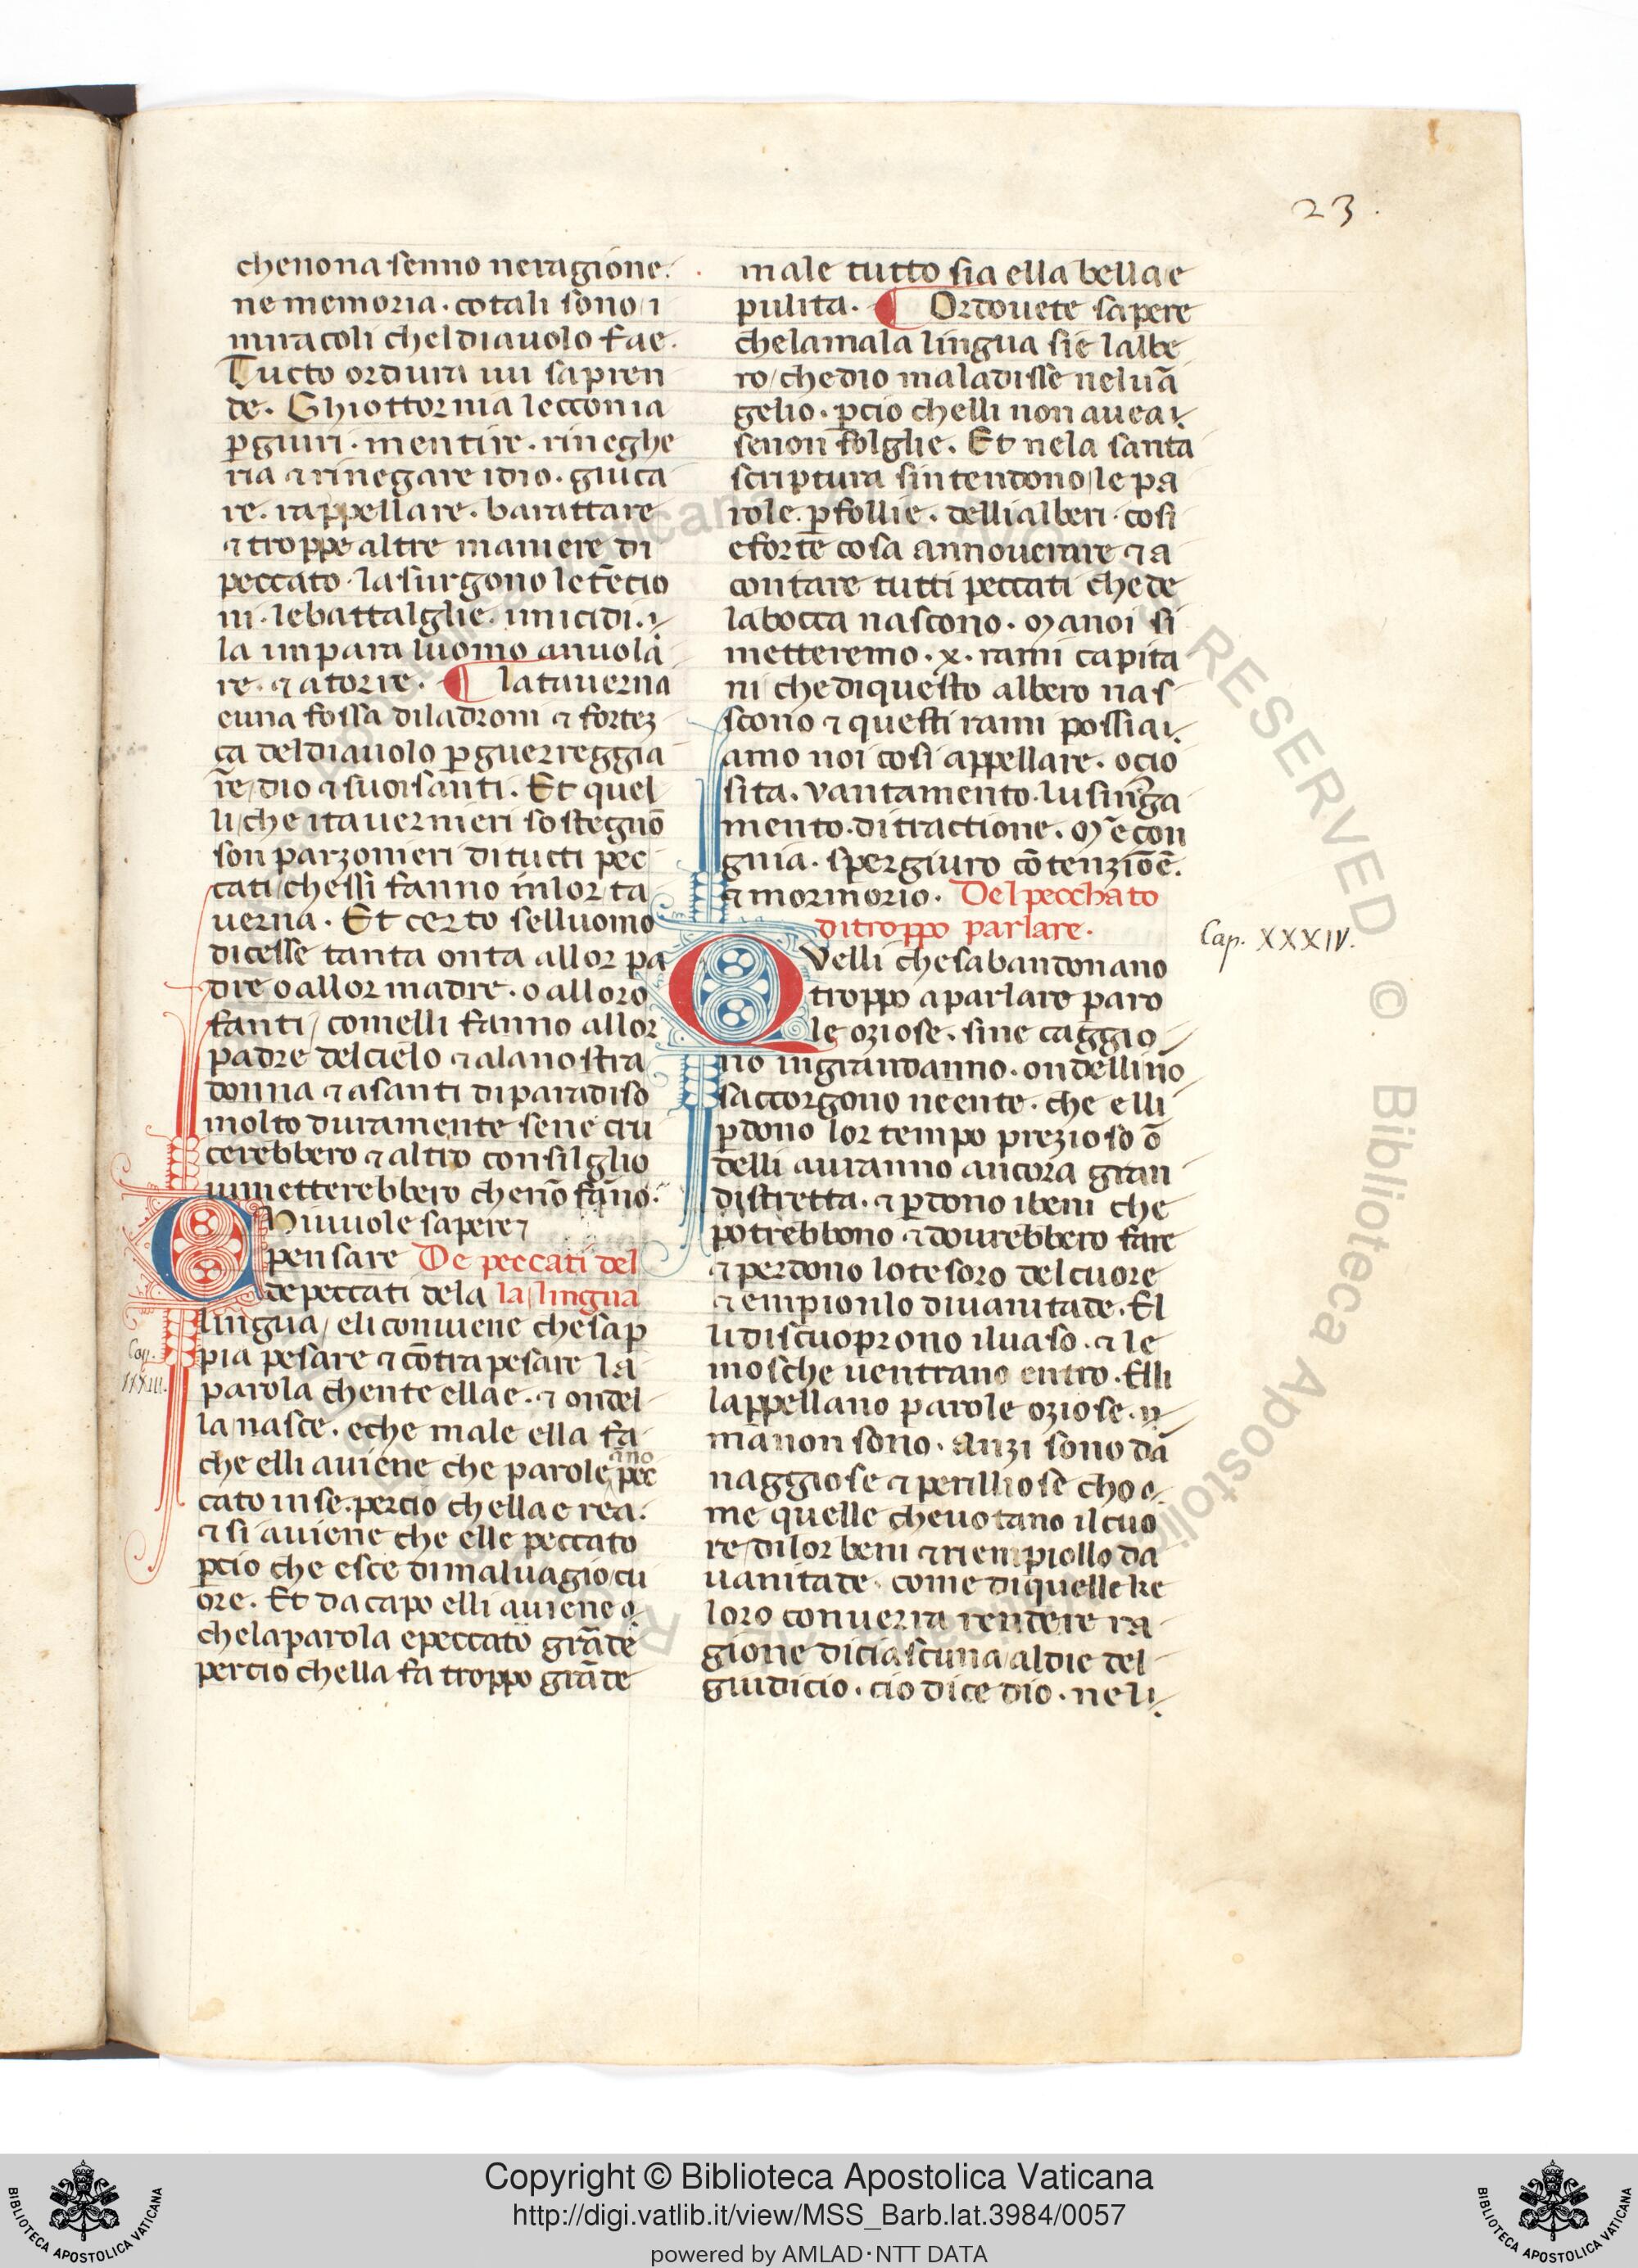 23.
che non a senno ne ragione.
ne memoria. cotali sono i
miracoli chel diauolo fae.
Tucto ordura ui si apren
de. Ghiottornia lecconia
ꝑgiuri. mentire. rineghe
ria ⁊ rinegare idio. giuca
re. rappellare. barattare
⁊ troppe altre maniere di
peccato. la surgono le tēcio
ni. le battalglie. unicidi.
la impara luomo a inuola
re. ⁊ a torre. ¶ la tauerna
e una fossa di ladroni ⁊ fortez
ça del diauolo ꝑ guerreggia
re / dio ⁊ suoi santi. Et quel
li / che i tauernieri sostegnō
son parzonieri di tucti pec
cati / chessi fanno in lor ta
uerna. Et certo selluomo
dicesse tanta onta allor pa
dre o allor madre. o alloro
fanti / comelli fanno allor
padre del cielo ⁊ ala nostra
donna ⁊ a santi di paradiso
molto duramente sene cru
cerebbero ⁊ altro consilglio
ui metterebbero che nō fāno.
Chi uuole sapere ⁊
pensare De peccati del
de peccati dela la lingua
lingua / eli conuiene che sap
pia pesare ⁊ cōtrapesare la
Cap.
XXXIII.
parola chente ella e. ⁊ ondel
la nasce. e che male ella fa
che elli auiene che parole ano pec
cato in se. percio chella e rea.
⁊ si auiene che elle peccato
ꝑcio che esce di maluagio cu
ore. Et da capo elli auiene
che la parola e peccato grāde
percio chella fa troppo grāde
male tutto sia ella bella e
pulita. ¶ Or douete sapere
che la mala lingua sie lalbe
ro / che dio maladisse nel uā
gelio. ꝑcio chelli non auea
se non folglie. Et nela santa
scriptura sintendono / le pa
role. ꝑ follie. delli alberi. cosi
e forte cosa annouerare ⁊ a
contare tutti peccati che de
la bocca nascono. Ma noi si
metteremo .x. rami capita
ni che di questo albero nas
scono ⁊ questi rami possia
amo noi cosi appellare. ocio
sita. vantamento. lusinga
mento. ditractione. Mēçon
gnia. spergiuro cōtenzione.
⁊ mormorio. Del pecchato
di troppo parlare.
Cap. XXXIV.
Quelli che sabandonano
troppo a parlare paro
le oziose. sine caggio
no in gran danno. ondelli no
saccorgono neente. che elli
ꝑdono lor tempo prezioso ō
delli auranno ancora gran
distretta. ⁊ ꝑdono i beni che
potrebbono ⁊ dourebbero fare
⁊ perdono lo tesoro del cuore
⁊ empionlo di uanitade. El
li discuoprono il uaso. ⁊ le
mosche uentrano entro. Elli
lappellano parole oziose.
ma non sono. anzi sono dā
naggiose ⁊ perilliose cho
me quelle che uotano il cuo
re / di lor beni ⁊ riempiollo da
uanitade. come di quelle ke
loro conuerra rendere ra
gione di ciascuna / al die del
giudicio. cio dice dio. nel
RESERVED © Biblioteca Apostolica Vaticana
Copyright © Biblioteca Apostolica Vaticana
http://digi.vatlib.it/view/MSS_Barb.lat.3984/0057
powered by AMLAD·NTT DATA
BIBLIOTECA APOSTOLICA VATICANA
BIBLIOTECA APOSTOLICA VATICANA